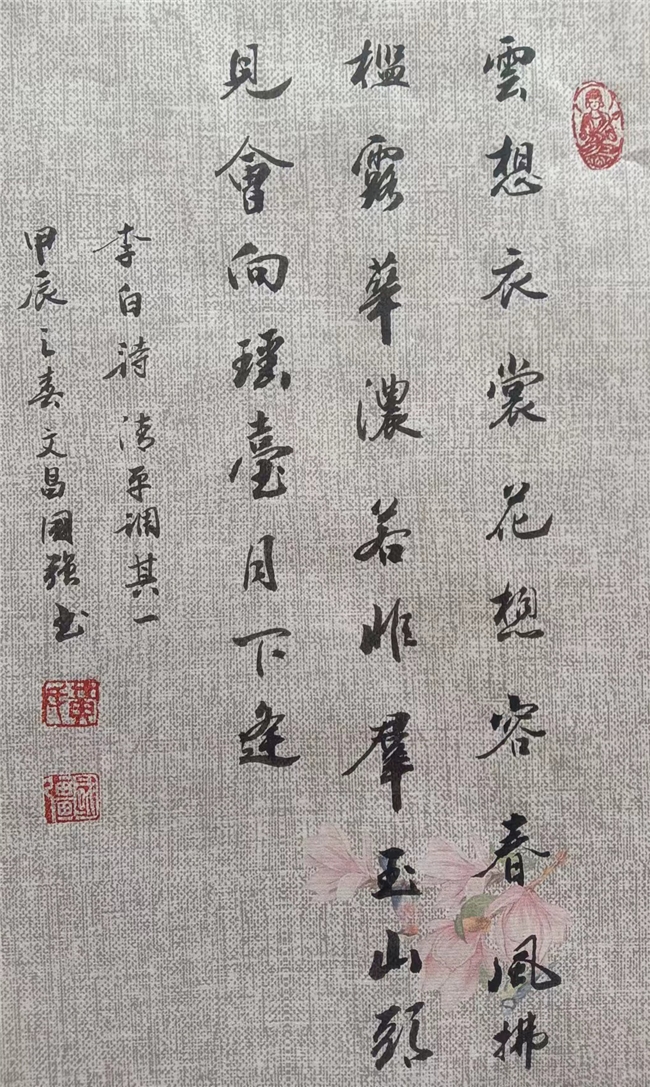 雲想衣裳花想容春風拂
檻露華濃若非羣玉山頭
見會向瑤臺月下逢
李白詩清平調其一
甲辰之春文昌國強书